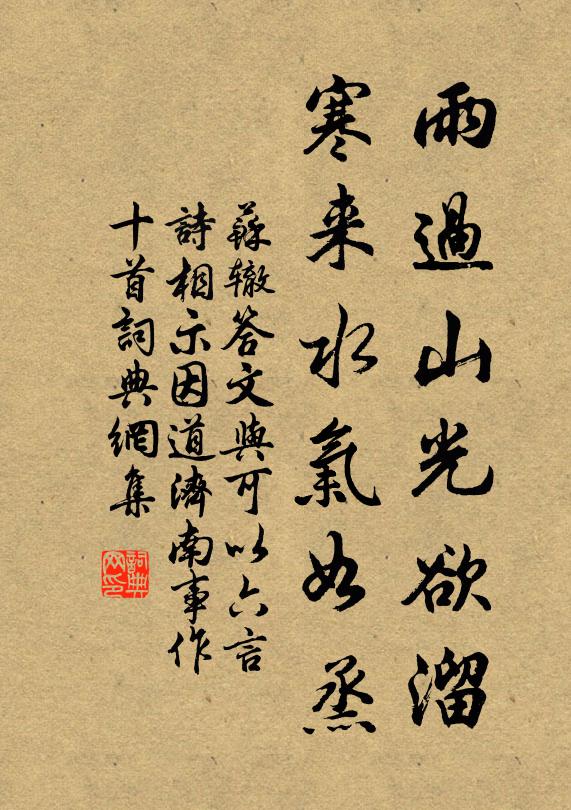 雨過山光欲溜
寒来水氣如蒸
蘇轍答文與可以六言
詩相示因道濟南事作
十首詞典網集
詞典
网印